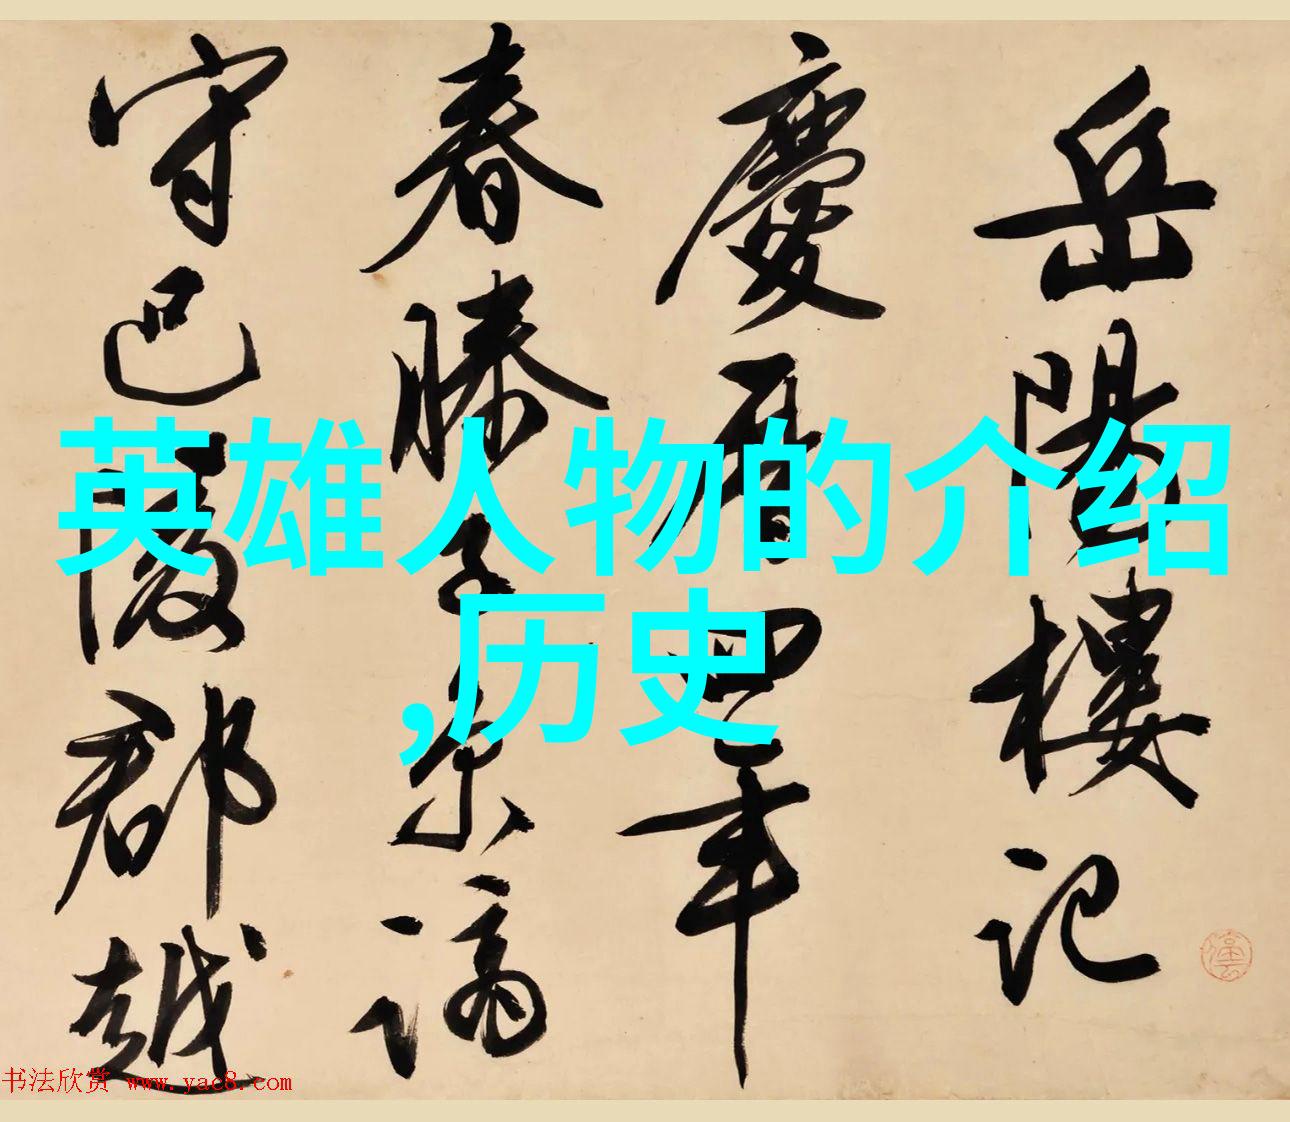 岳陽樓記
慶曆四年
春滕子京謫
守巴陵郡越
英雄人物的介绍
,历史
书法欣赏 www.yac8.com